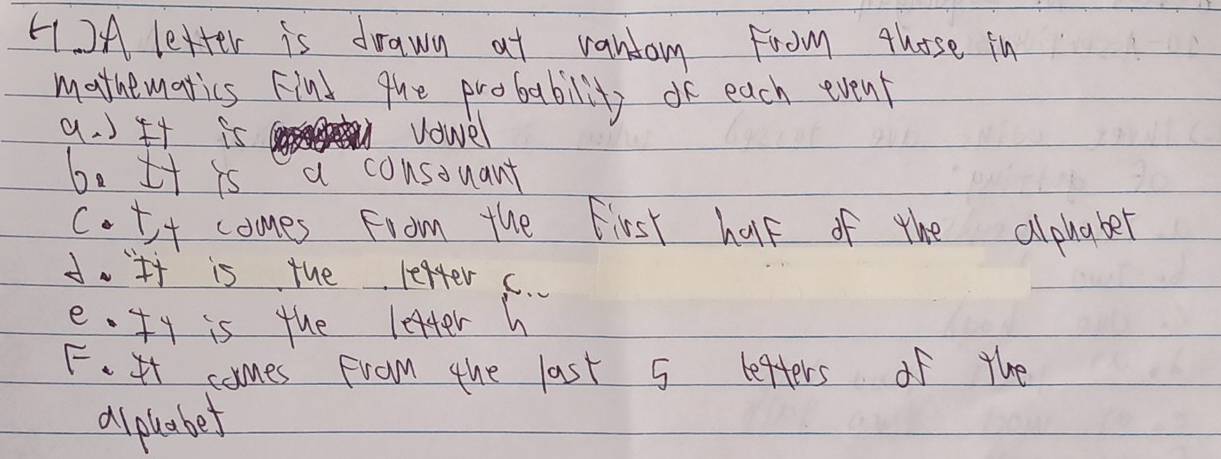 4.) A letter is drawn at random From those in
mathematics Find the probability of each event
a.) It is vowel
b. It is a consonant
c. It comes From the First half of the alphabet
d. It is the letter c..
e. It is the letter h
F. It comes From the last 5 letters of the
alphabet